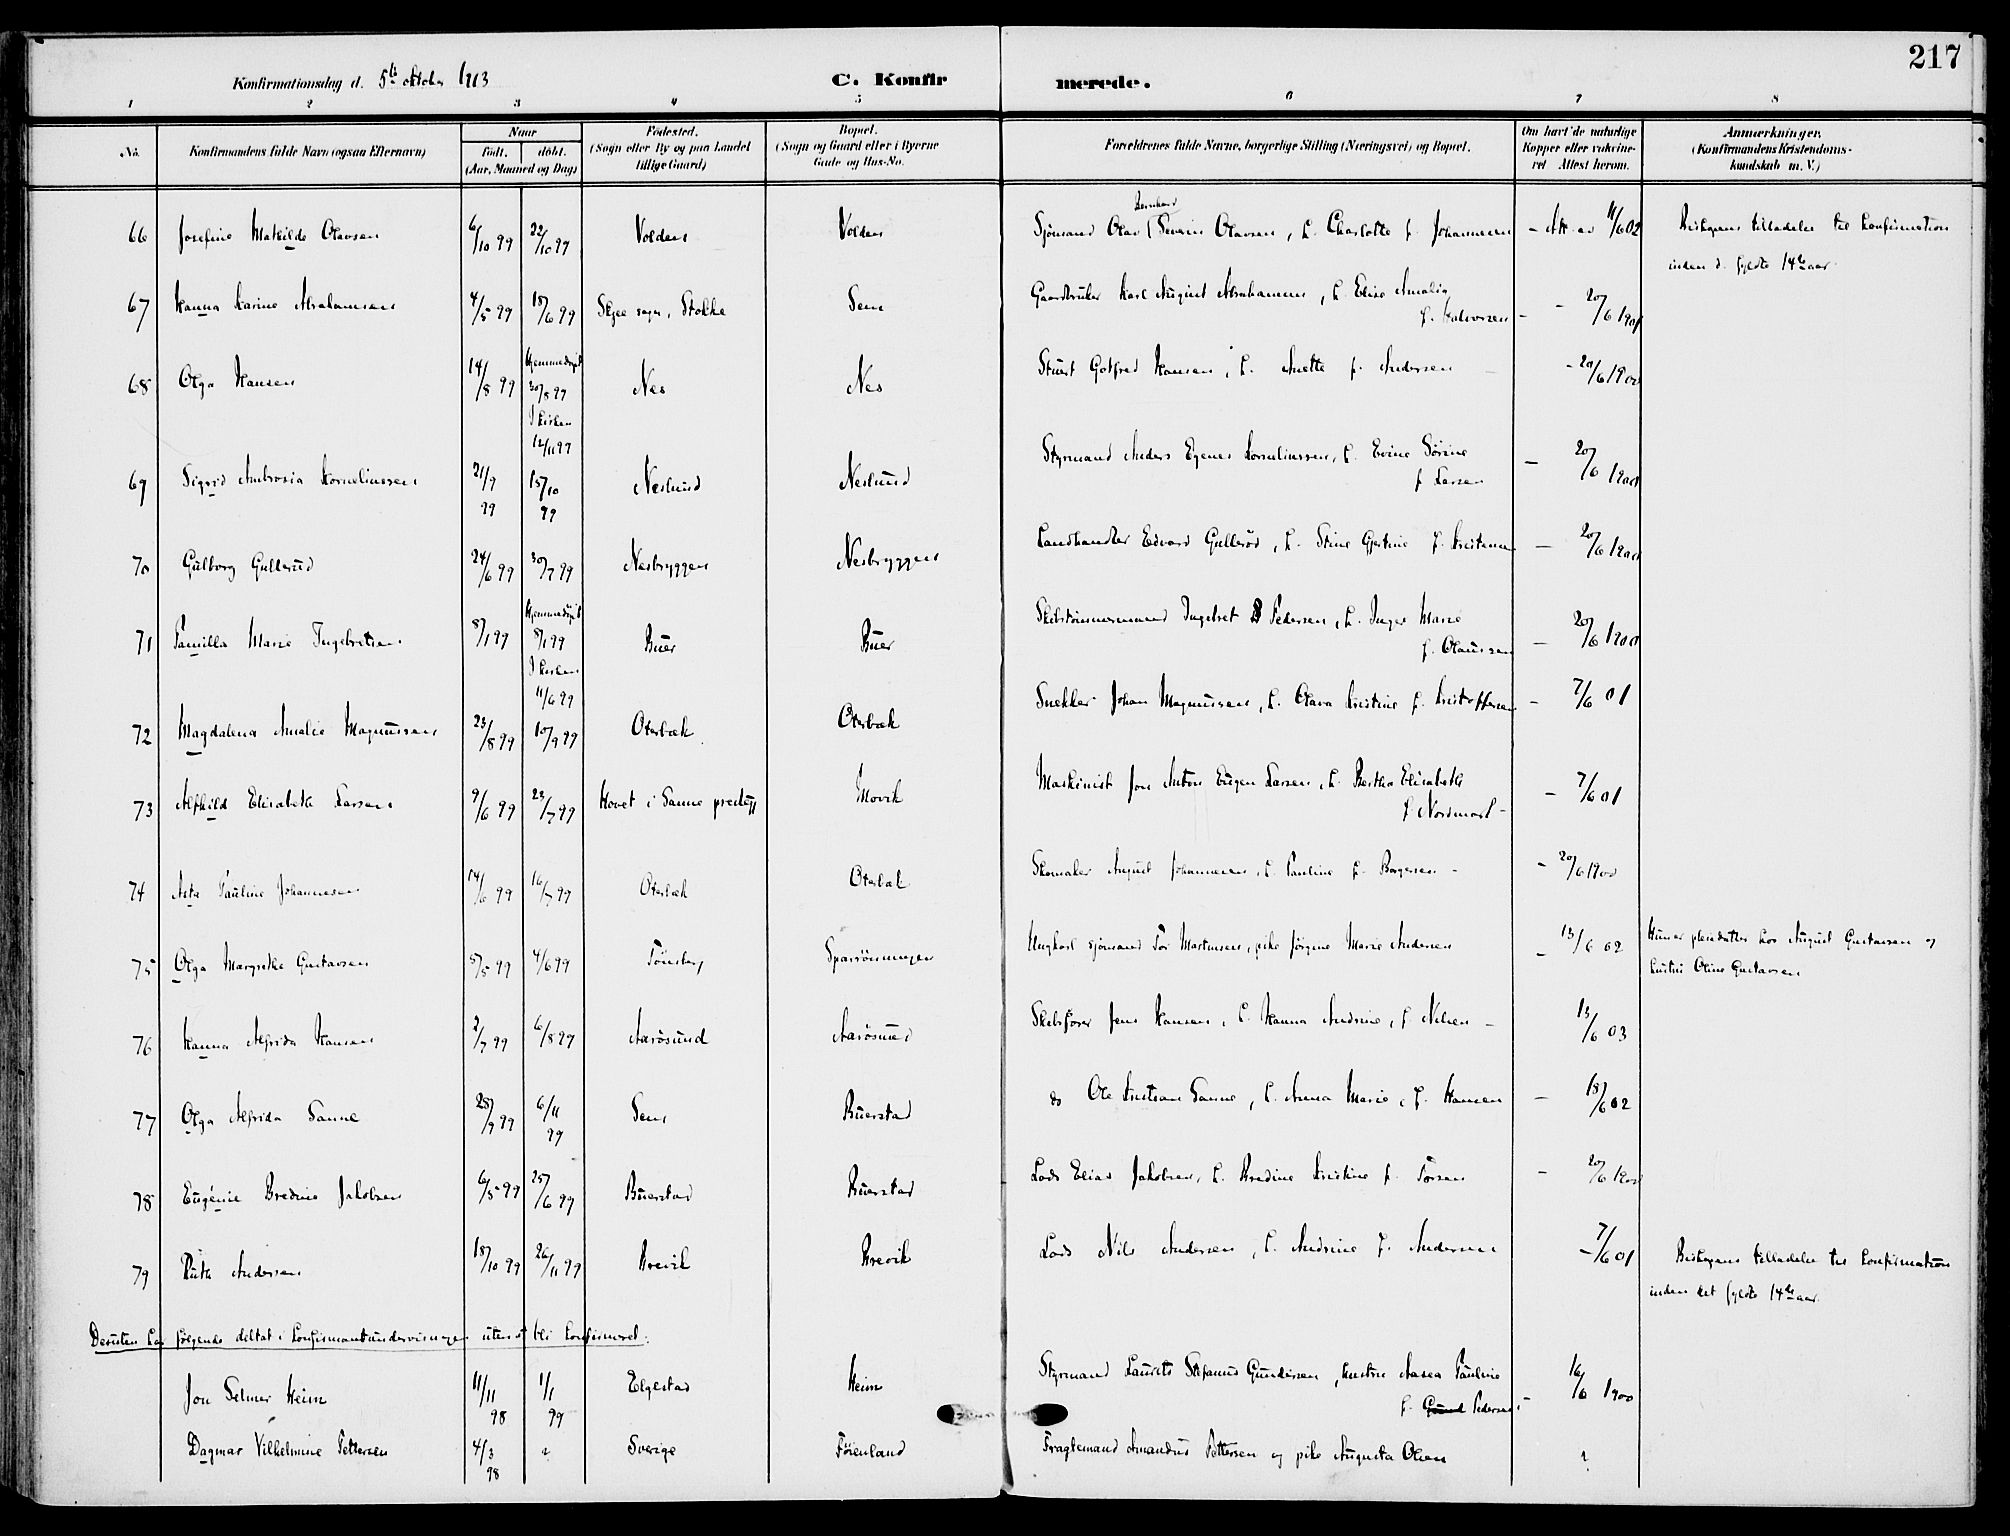 217
Konfirmationsdag d. 5te oktober 1913 C. Konfirmerede.
1 2 3 4 5 6 7 8
No. Konfirmandens fulde Navn (ogsaa Efternavn) Naar født. døbt. (Aar, Maaned og Dag) Fødested. (Sogn eller By og paa Landet tillige Gaard) Bopæl. (Sogn og Gaard eller i Byerne Gade og Hus-No. Forældrenes fulde Navne, borgerlige Stilling (Næringsvei) og Bopæl. Om havt de naturlige Kopper eller vakcineret Attest herom. Anmærkninger. (Konfirmandens Kristendomskundskab m. V.)
66 Josefine Mathilde Olavsen 6/10 99 22/10 99 Volden Volden Sjömand Olav Bernhard Severin Olavsen, h. Charlotte f. Johannesen - Att. av 11/6 02 Biskopens tilladelse til konfirmation
inden d. fyldte 14de aar.
67 Hanna Karine Abrahamsen 4/5 99 18/6 99 Skjee sogn, Stokke Sem Gaardbruker Karl August Abrahamsen, h. Elise Amalia
f. Halvorsen - - 20/6 1901
68 Olga Hansen 14/8 99 Hjemmedøpt 30/8 99 I kirken 12/11 99 Nes Nes Stuert Gotfred Hansen, h. Anette f. Andersen - 20/6 1900
69 Sigrid Ambrosia Korneliussen 21/9 99 15/10 99 Neslund Neslund Styrmand Anders Egenes Korneliussen, h. Evine Sörine
f. Larsen - 20/6 1900
70 Gulborg Gullerud 24/6 99 30/7 99 Nesbryggen Nesbryggen Landhandler Edvard Gulleröd, h. Stine Gjertine f. Kristensen - 20/6 1900
71 Pamilla Marie Ingebretsen 8/1 99 Hjemmedøpt 8/1 99 I kirken 11/6 99 Buer Buer Skibstömmermand Ingebret Pedersen, h. Inger Marie
f. Olaussen - 20/6 1900
72 Magdalena Amalie Magnussen 23/8 99 10/9 99 Oterbæk Oterbæk Snekker Johan Magnussen, h. Olava Kristine f. Kristoffersen - 7/6 01
73 Alfhild Elisabeth Larsen 9/6 99 23/7 99 Hovet i Sanne prestegj Movik Maskinist Jon Anton Eugen Larsen, h. Bertha Elisabeth
f. Nordmark - - 7/6 01
74 Asta Pauline Johannesen 14/6 99 16/7 99 Oterbæk Oterbæk Skomaker August Johannesen, h. Pauline f. Borgersen - - 20/6 1900
75 Olga Margrethe Gustavsen 5/5 99 4/6 99 Tönsberg Sparröningen Ungkarl sjömand Tor Martinsen, pike Jörgine Marie Andersen - 13/6 02 Hun er pleiedatter hos August Gustavsen og
hustru Oline Gustavsen
76 Hanna Alfrida Hansen 2/7 99 6/8 99 Aarösund Aarösund Skibsförer Jens Hansen, h. Hanna Andrine, f. Nilsen - 13/6 03
77 Olga Alfrida Sanne 28/9 99 6/11 99 Sem Buerstad do Ole Kristian Sanne, h. Anna Marie, f. Hansen - 18/6 02
78 Eugénie Bredine Jakobsen 6/5 99 25/6 99 Buerstad Buerstad Lods Elias Jakobsen, h. Bredine Kristine f. Torsen - 20/6 1900
79 Ruth Andersen 18/10 99 26/11 99 Brevik Brevik Lods Nils Andersen, h. Andrine f. Andersen - 7/6 01 Biskopens tilladelse til konfirmation
inden det fyldte 14de aar.
Desuten har følgende deltat i konfirmantundervisningen uten at bli konfirmeret:
Jon Selmer Heim 11/11 98 1/1 99 Elgestad Heim Styrmand Laurits Stefanus Gundersen, hustru Aasea Pauline
f. Pedersen - 16/6 1900
Dagmar Vilhelmine Pettersen 4/3 98 ? Sverige Föienland Fragtemand Amandus Pettersen og pike Augusta Olsen ?